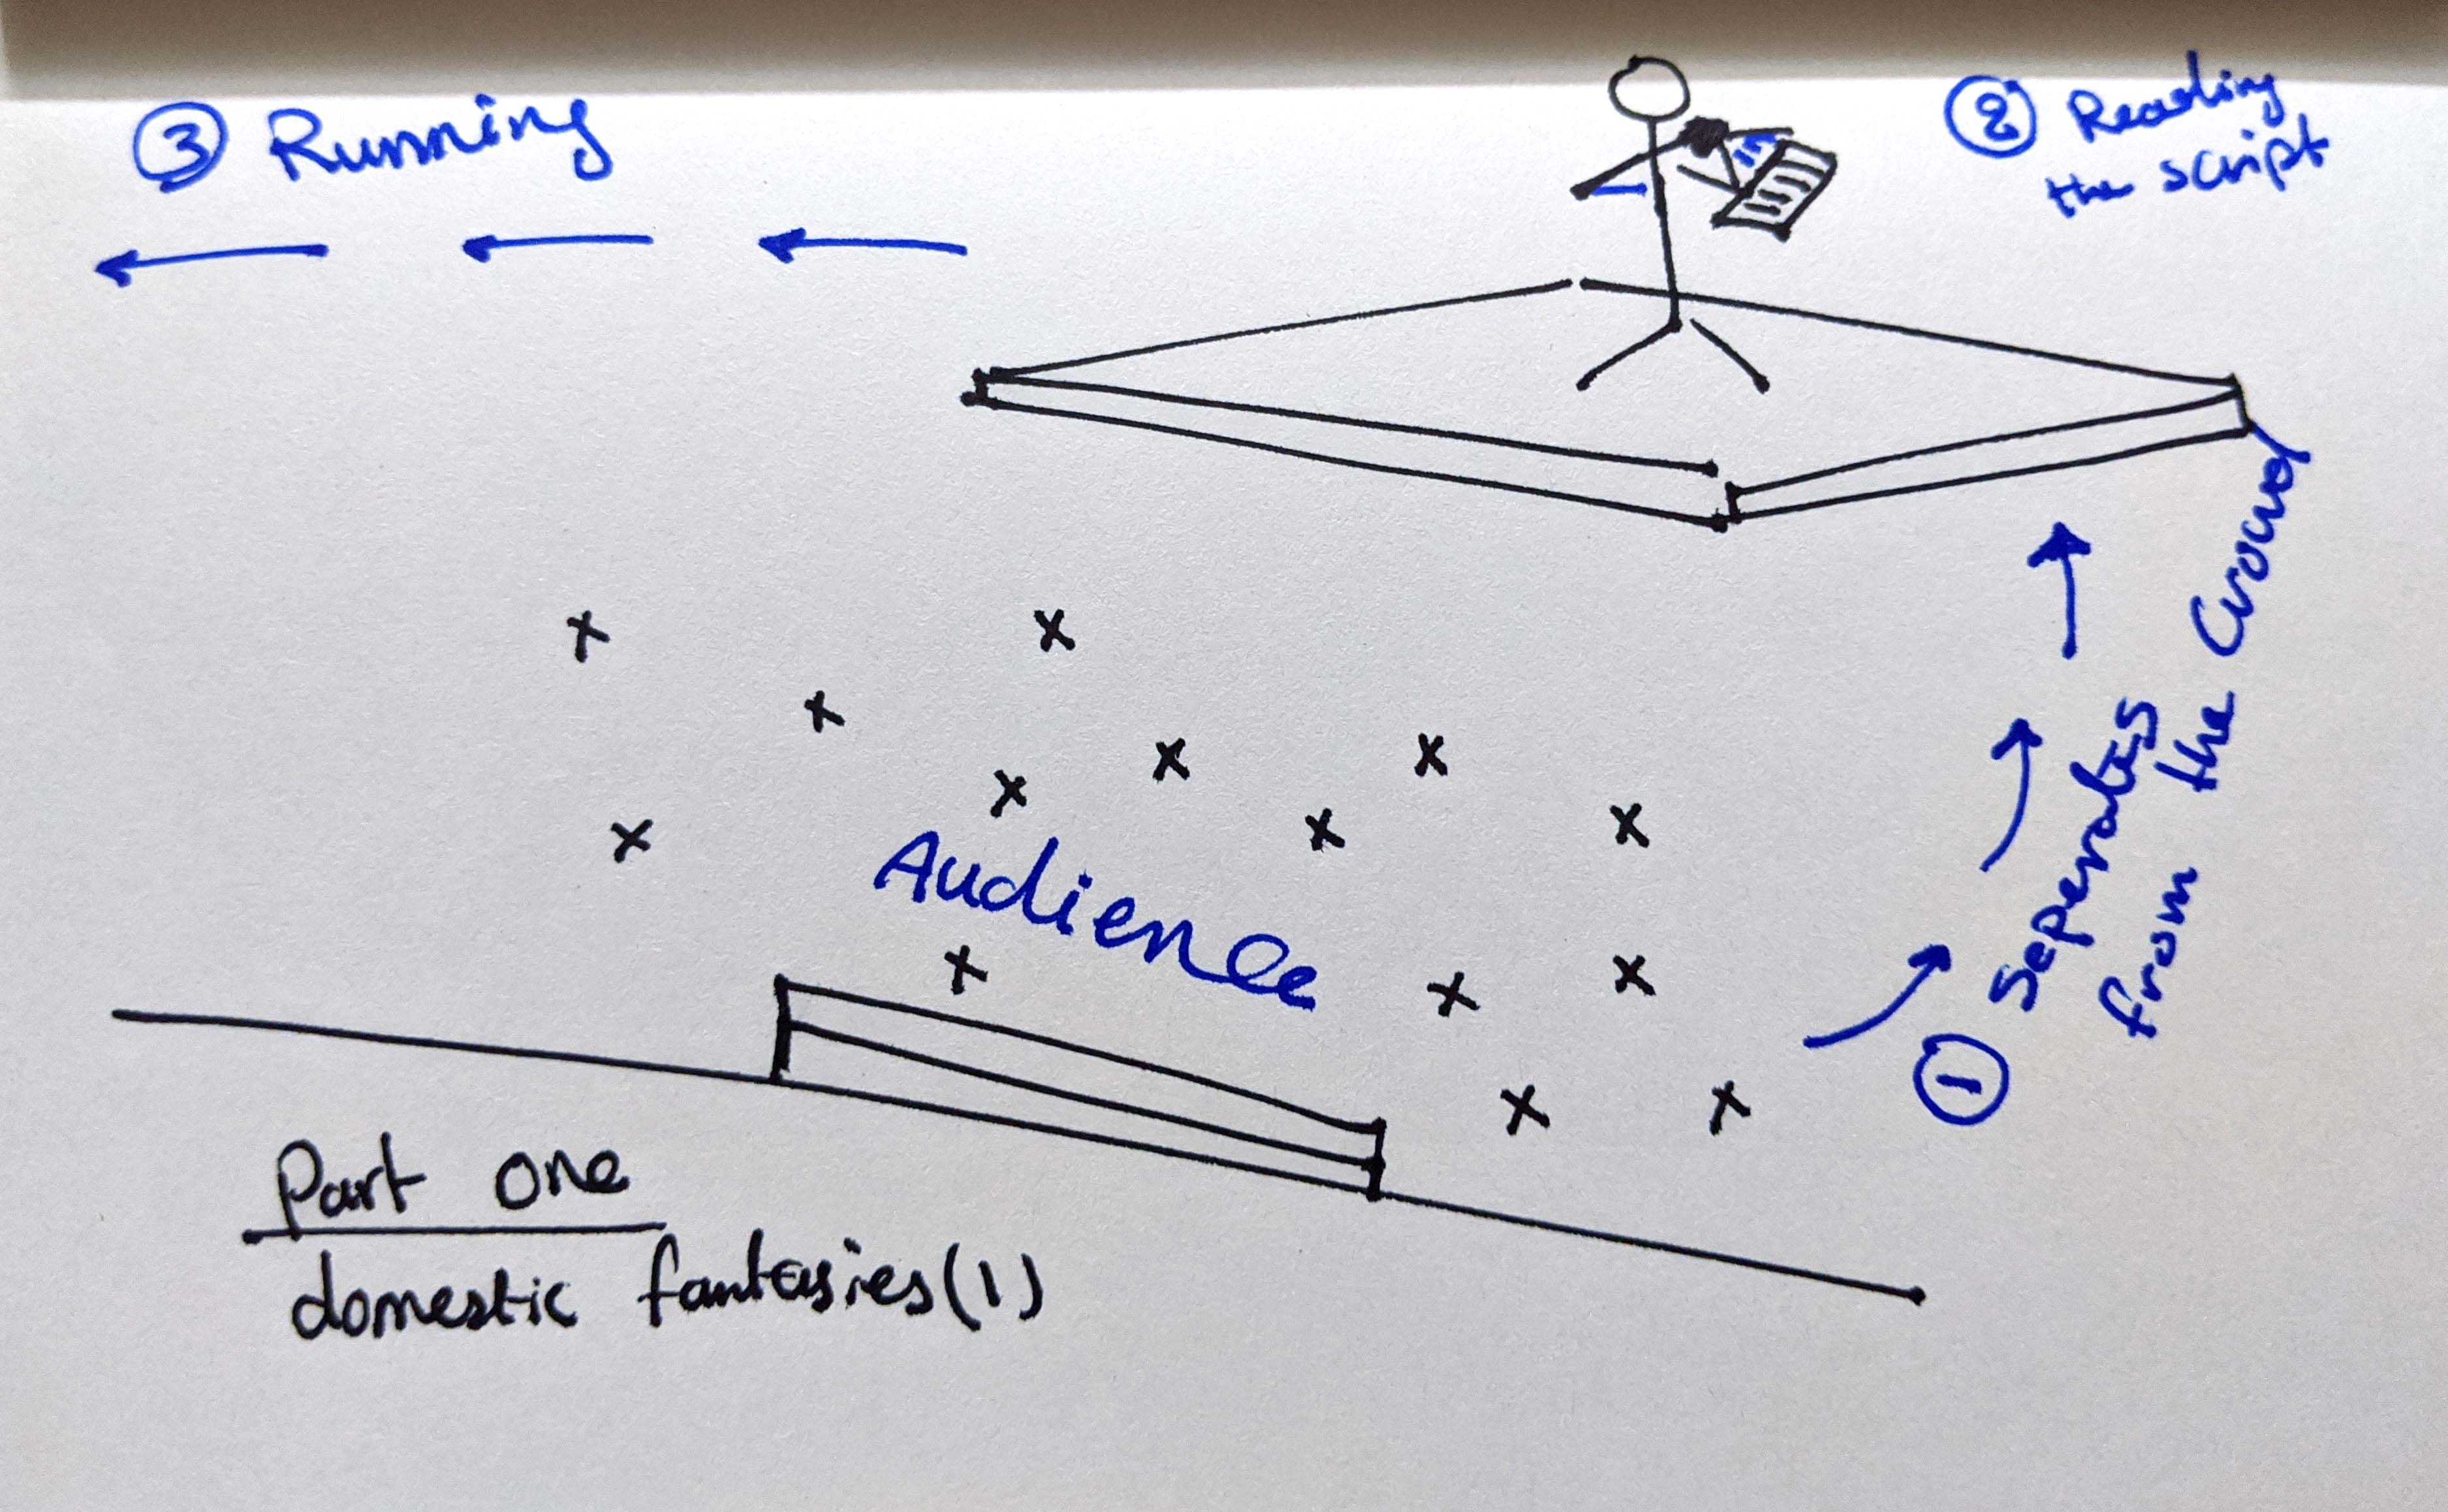 ③ Running
② Reading
the script
① Seperates
from the Crowd
Audience
Part one
domestic fantasies(1)